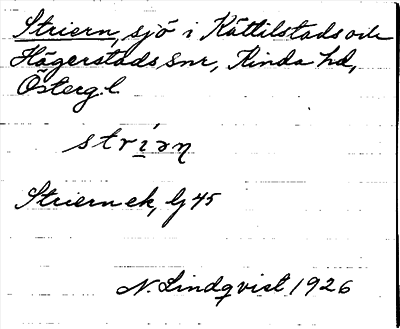 Striern, sjö i Kättilstads och
Hägerstads snr, Kinda hd,
Östergl.
strìən
Striern ek, bl 45
N. Lindqvist 1926